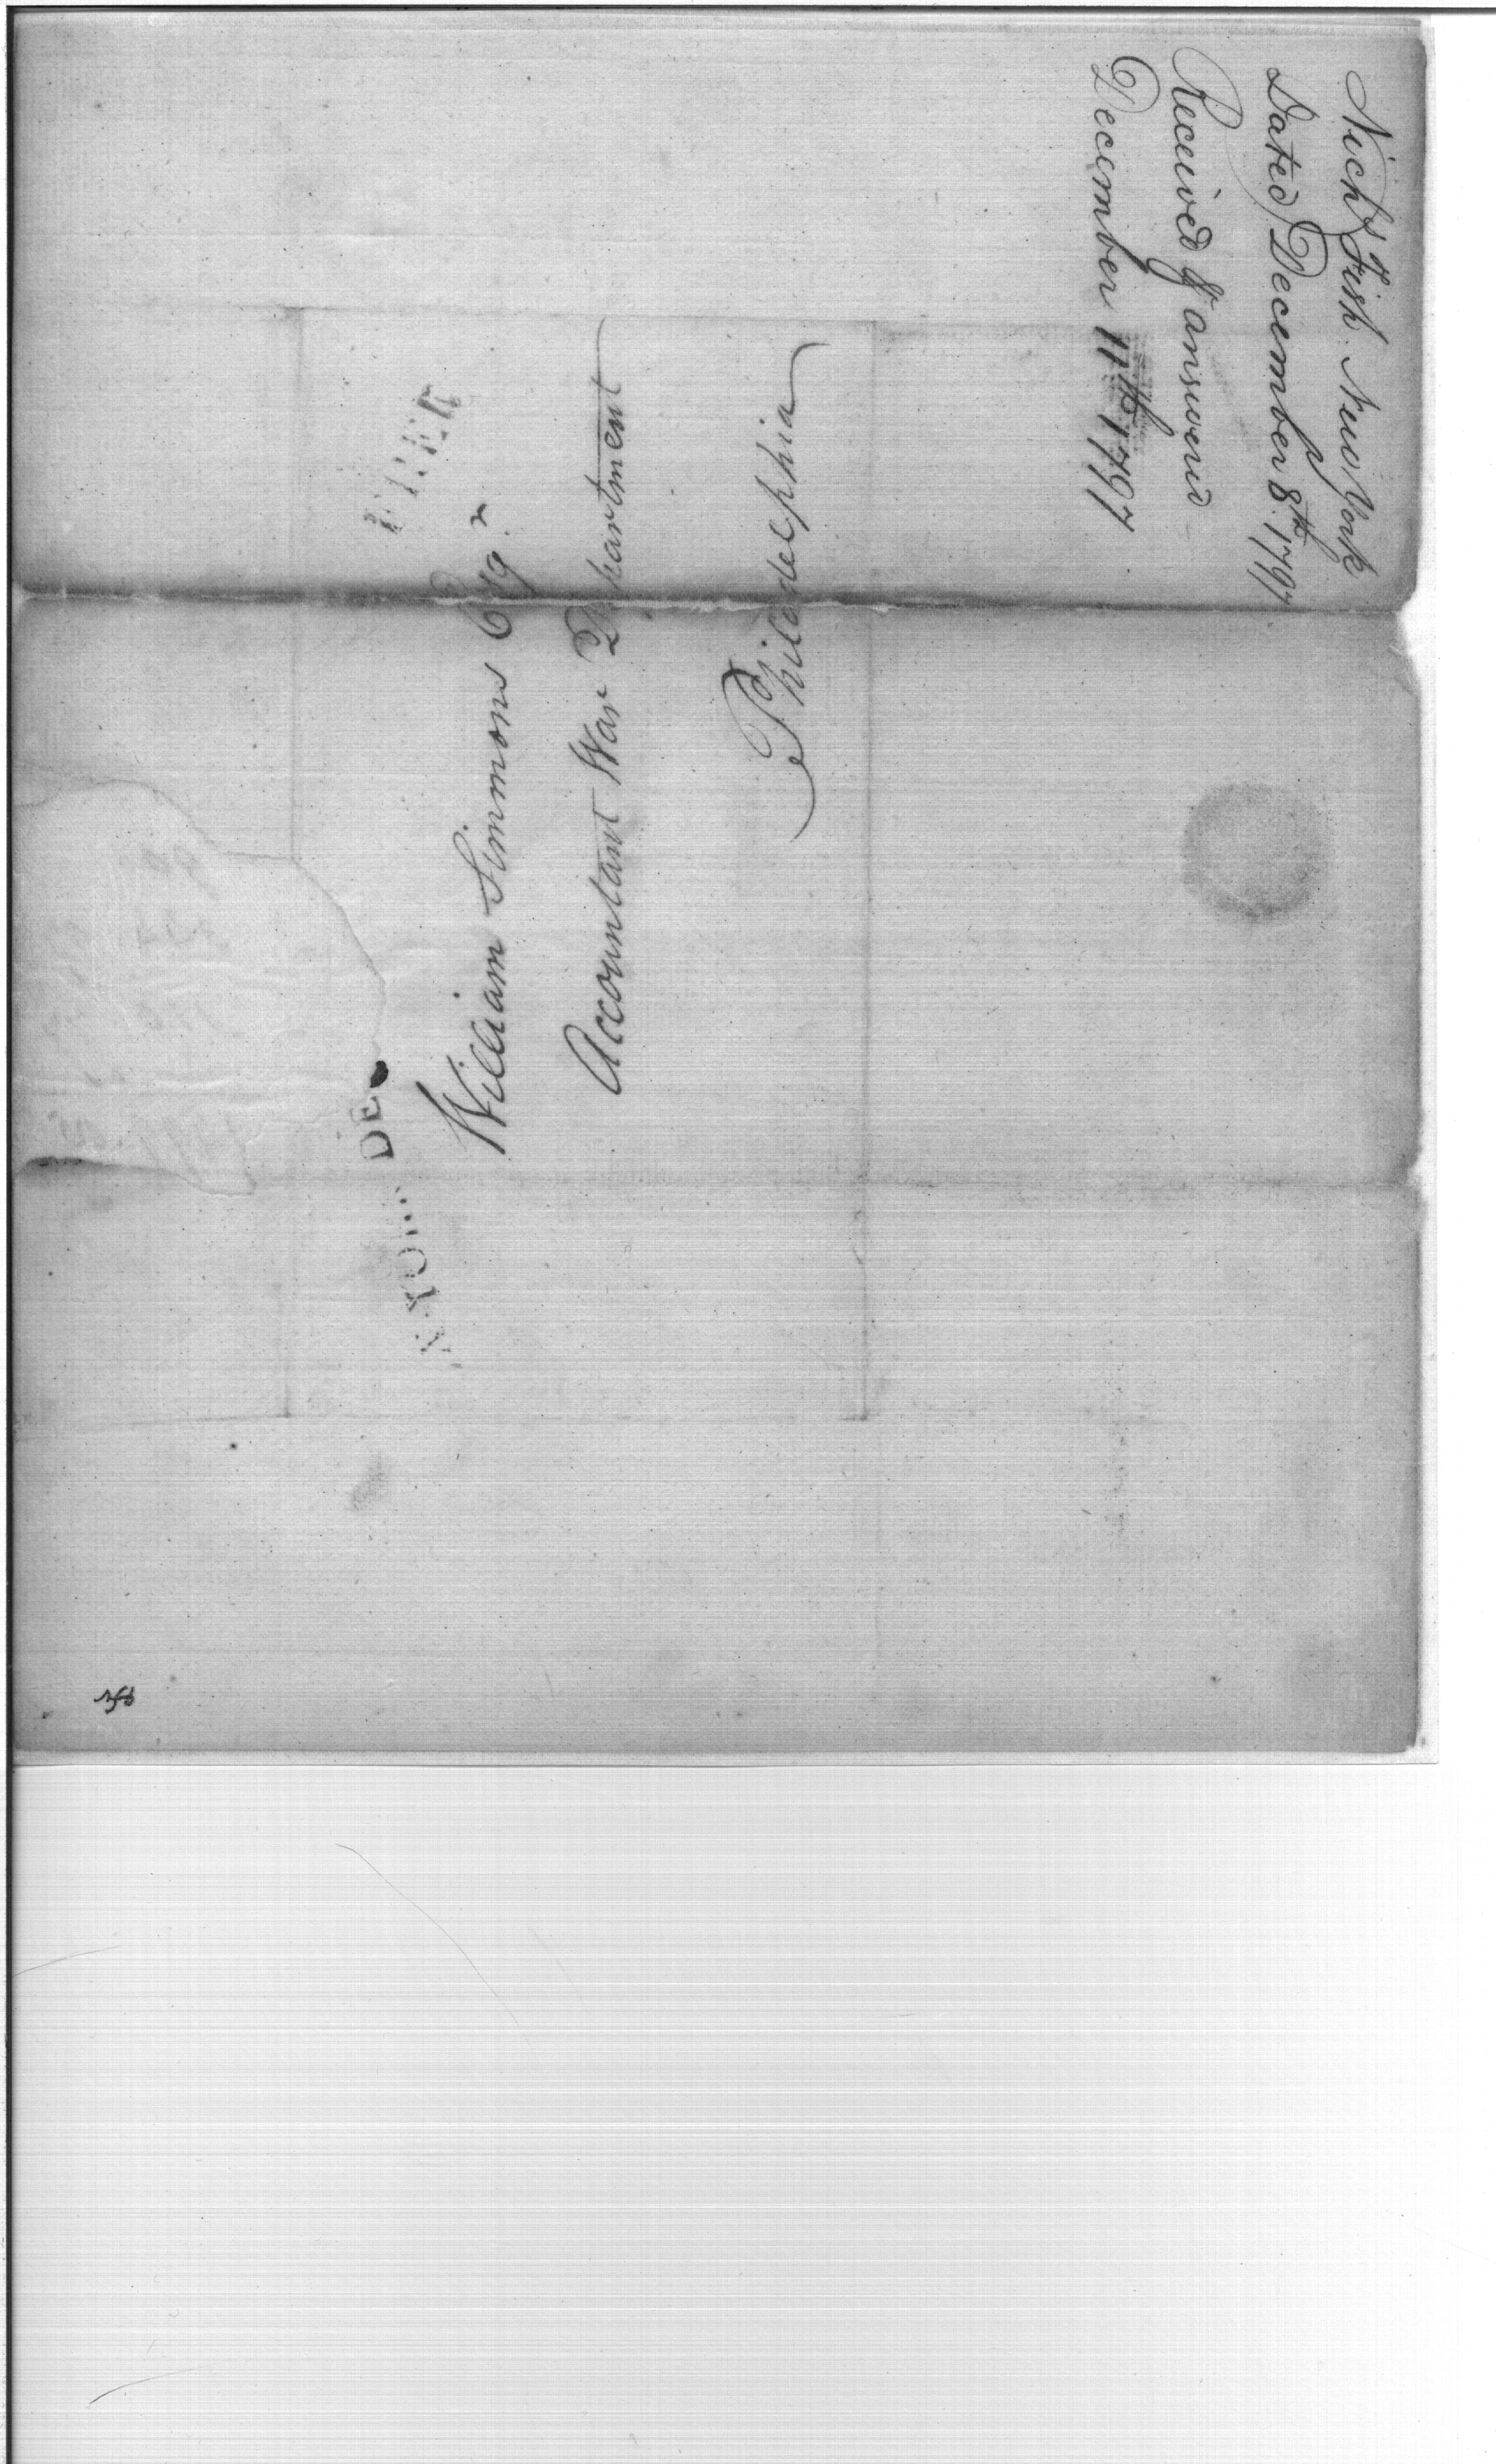 Nichs Fish. New York
Dated December 8th. 1797
Received & answered
December 11th 1797
FREE
William Simmons Esqr
Accountant War Department
Philadelphia